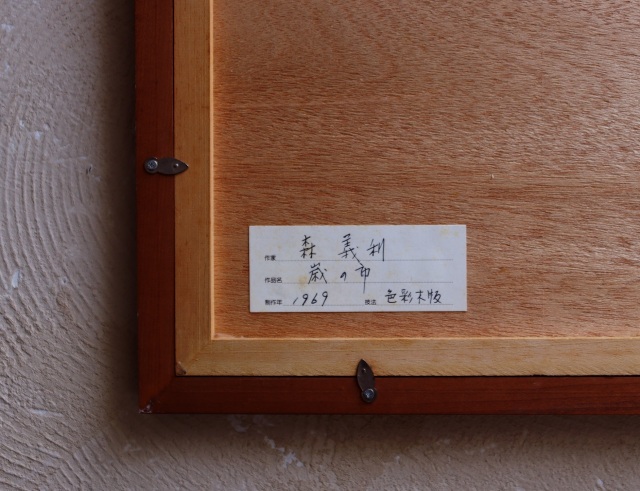 作家 森 義利
作品名 歳の市
制作年 1969 技法 色彩木版